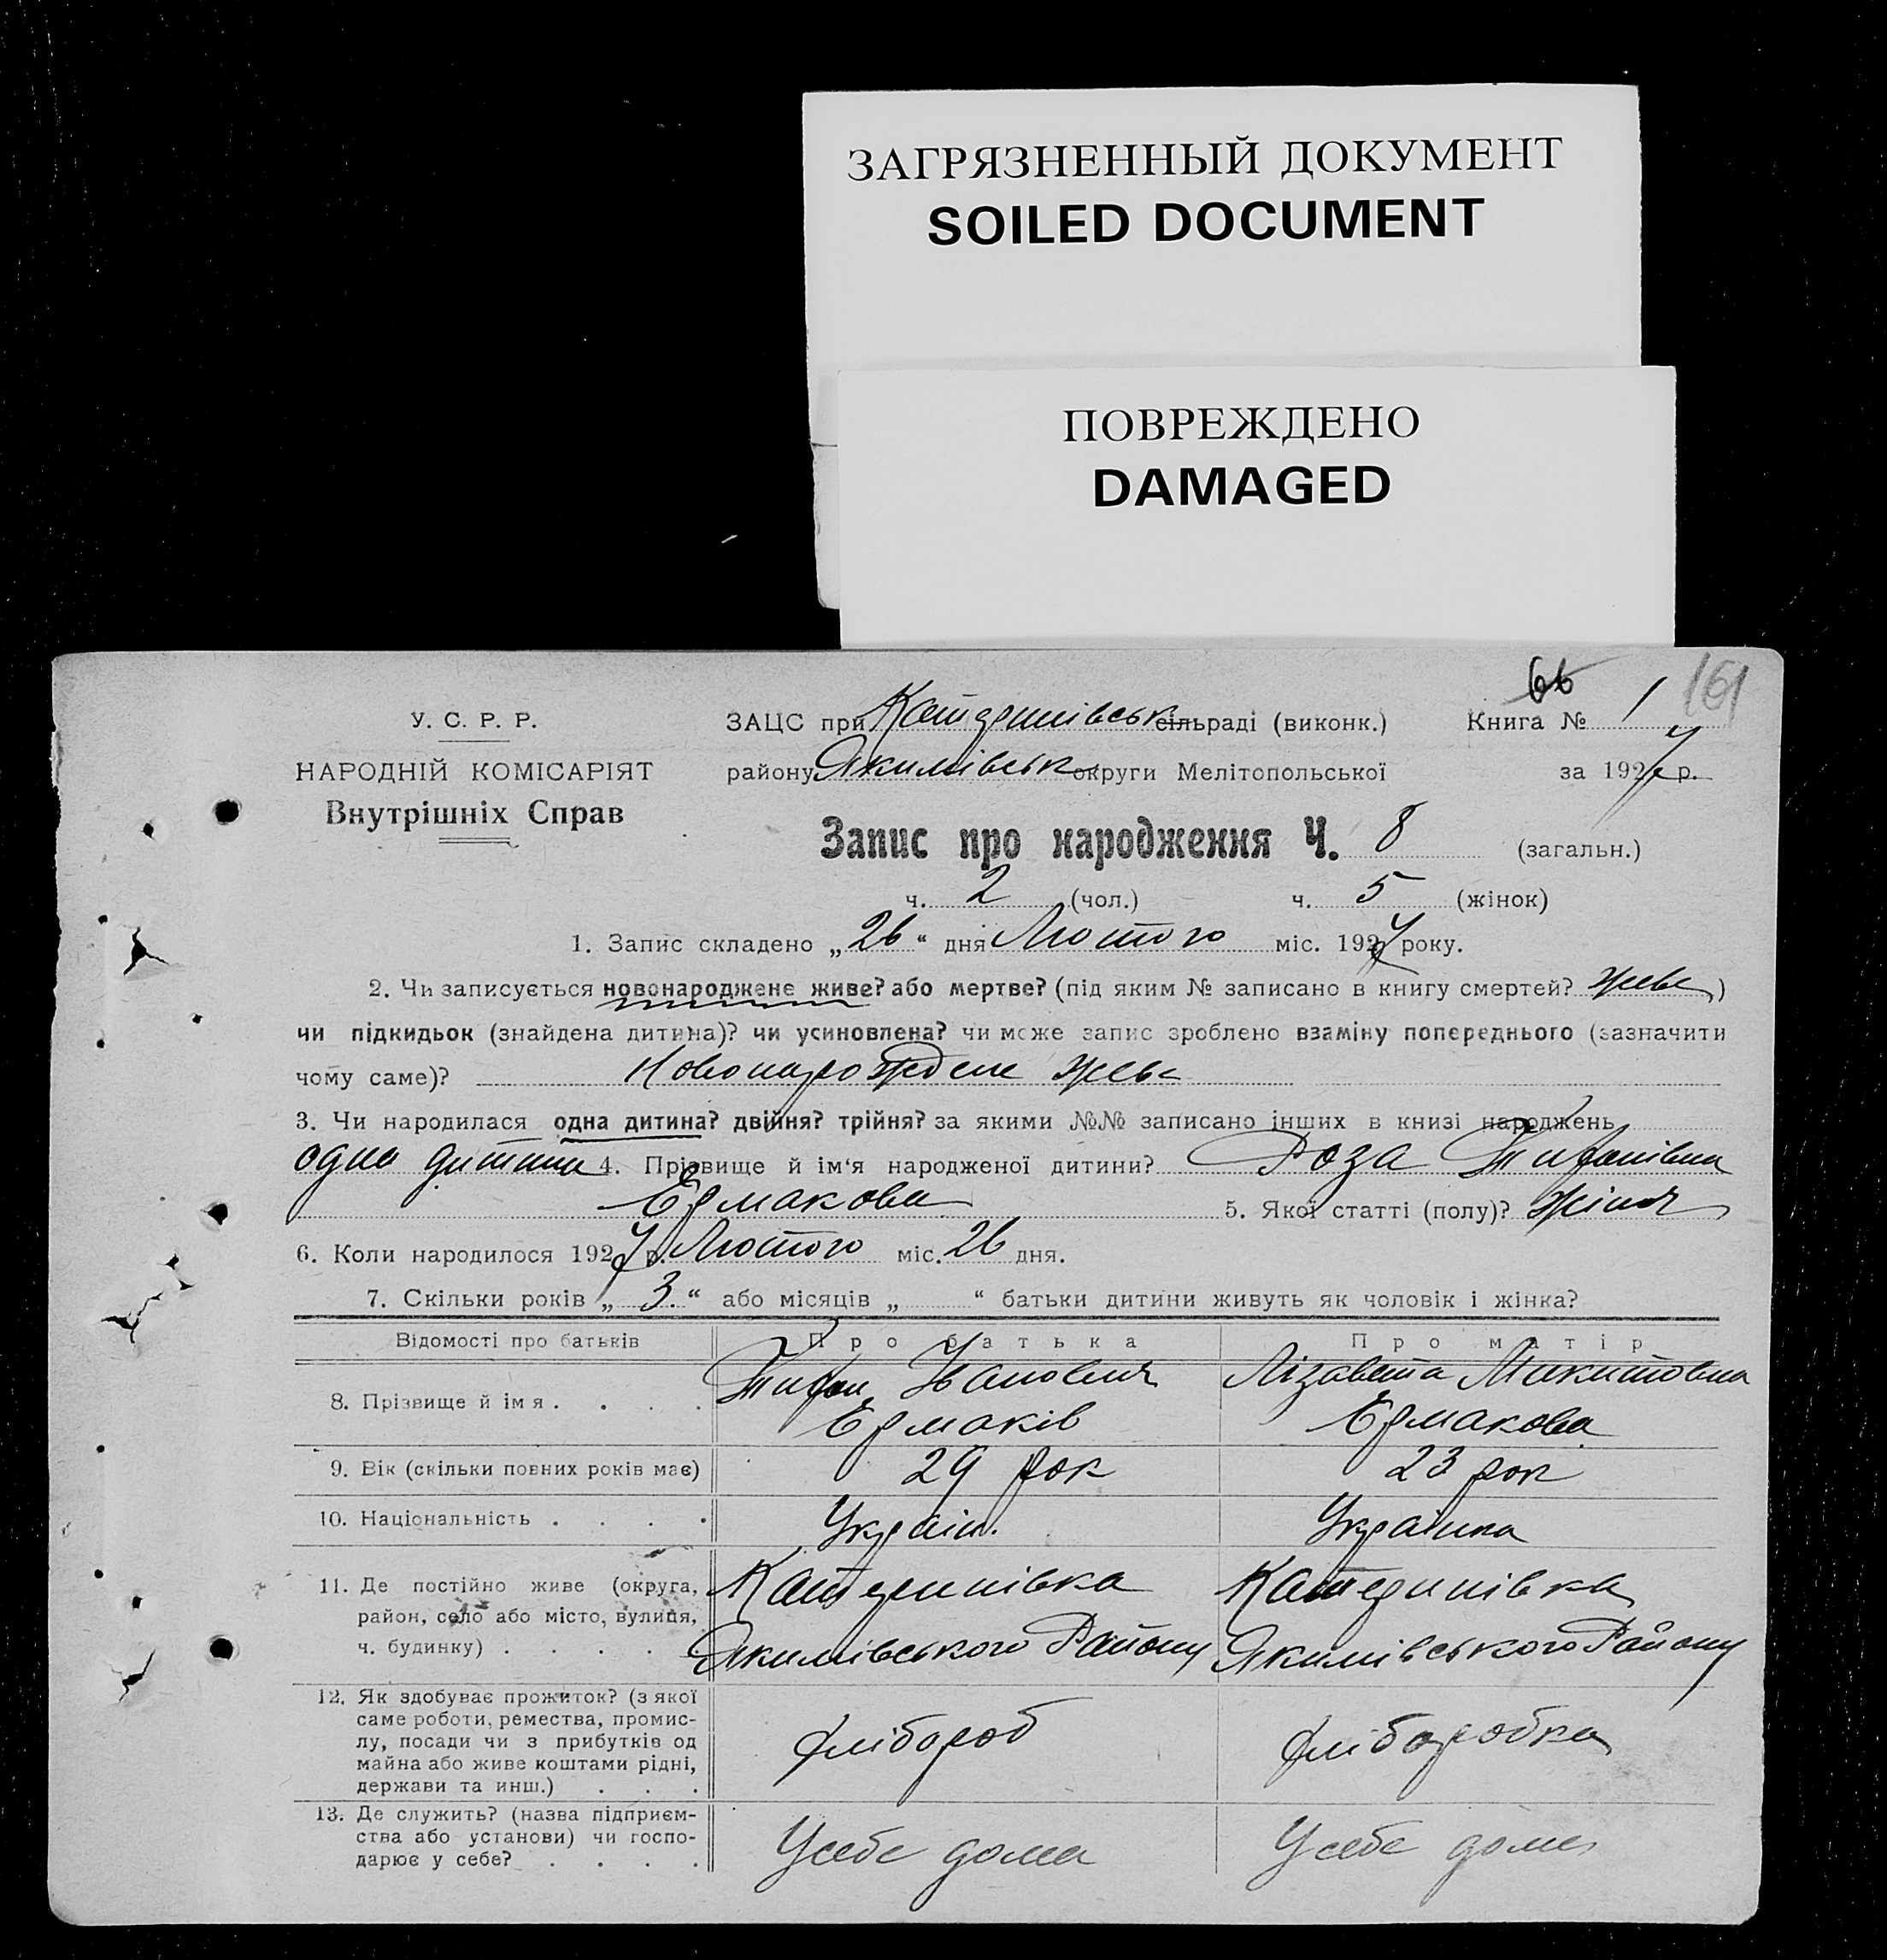 ЗАГРЯЗНЕННЫЙ ДОКУМЕНТ
SOILED DOCUMENT
ПОВРЕЖДЕНО
DAMAGED
66 161
У. С. Р. Р.
НАРОДНІЙ КОМІСАРІЯТ
Внутрішніх Справ
ЗАЦС при Катеринівськ сільраді (виконк.) Книга № 1
району Якимівськ округи Мелітопольської за 1927 р.
Запис про народження Ч. 8 (загальн.)
ч. 2 (чол.) ч. 5 (жінок)
1. Запис складено „26“ дня Лютого міс. 1927 року.
2. Чи записується новонароджене живе? або мертве? (під яким № записано в книгу смертей? живе)
чи підкидьок (знайдена дитина)? чи усиновлена? чи може запис зроблено взаміну попереднього (зазначити
чому саме)? Новонарождене живе
3. Чи народилася одна дитина? двійня? трійня? за якими №№ записано інших в книзі народжень
одна дитина 4. Прізвище й ім‘я народженої дитини? Роза Тифонівна
Ермакова 5. Якої статті (полу)? жіноч
6. Коли народилося 1927 р. Лютого міс. 26 дня.
7. Скільки років „3“ або місяців „ “ батьки дитини живуть як чоловік і жінка?
Відомості про батьків Про батька Про матір
8. Прізвище й імя . . . . Тифон Іванович Лізавета Микитовна
Ермаків Ермакова
9. Вік (скільки повних років має) 29 рок 23 рок
10. Національність . . . . Україн. Українка
11. Де постійно живе (округа, район, село або місто, вулиця, ч. будинку) . . . . Катеринівка Катеринівка
Якимівського Району Якимівського Району
12. Як здобуває прожиток? (з якої
саме роботи, ремества, промис-
лу, посади чи з прибутків од
майна або живе коштами рідні,
держави та инш.) . . . хлібороб хліборобка
13. Де служить? (назва підприєм-
ства або установи) чи госпо-
дарює у себе? . . . . У себе дома У себе дома